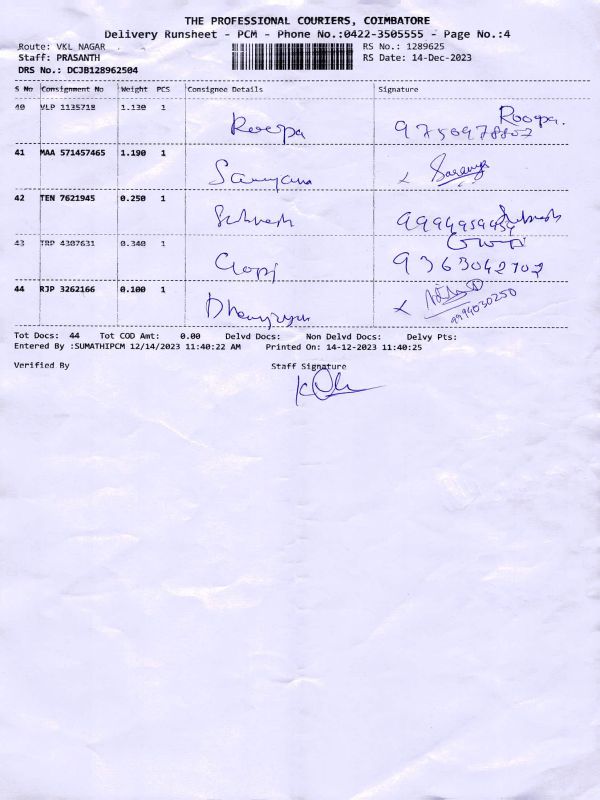 THE PROFESSIONAL COURIERS, COIMBATORE
Delivery Runsheet - PCM - Phone No.:0422-3505555 - Page No.:4
Route: VKL NAGAR RS No.: 1289625
Staff: PRASANTH RS Date: 14-Dec-2023
DRS No.: DCJB128962504
S No Consignment No Weight PCS Consignee Details Signature
40 VLP 1135718 1.130 1 Roopa Roopa.
41 MAA 571457465 1.190 1 Saranya
42 TEN 7621945 0.250 1
43 TRP 4307631 0.340 1 Gopi 9363042702
44 RJP 3262166 0.100 1
9994030250
Tot Docs: 44 Tot COD Amt: 0.00 Delvd Docs: Non Delvd Docs: Delvy Pts:
Entered By :SUMATHIPCM 12/14/2023 11:40:22 AM Printed On: 14-12-2023 11:40:25
Verified By Staff Signature